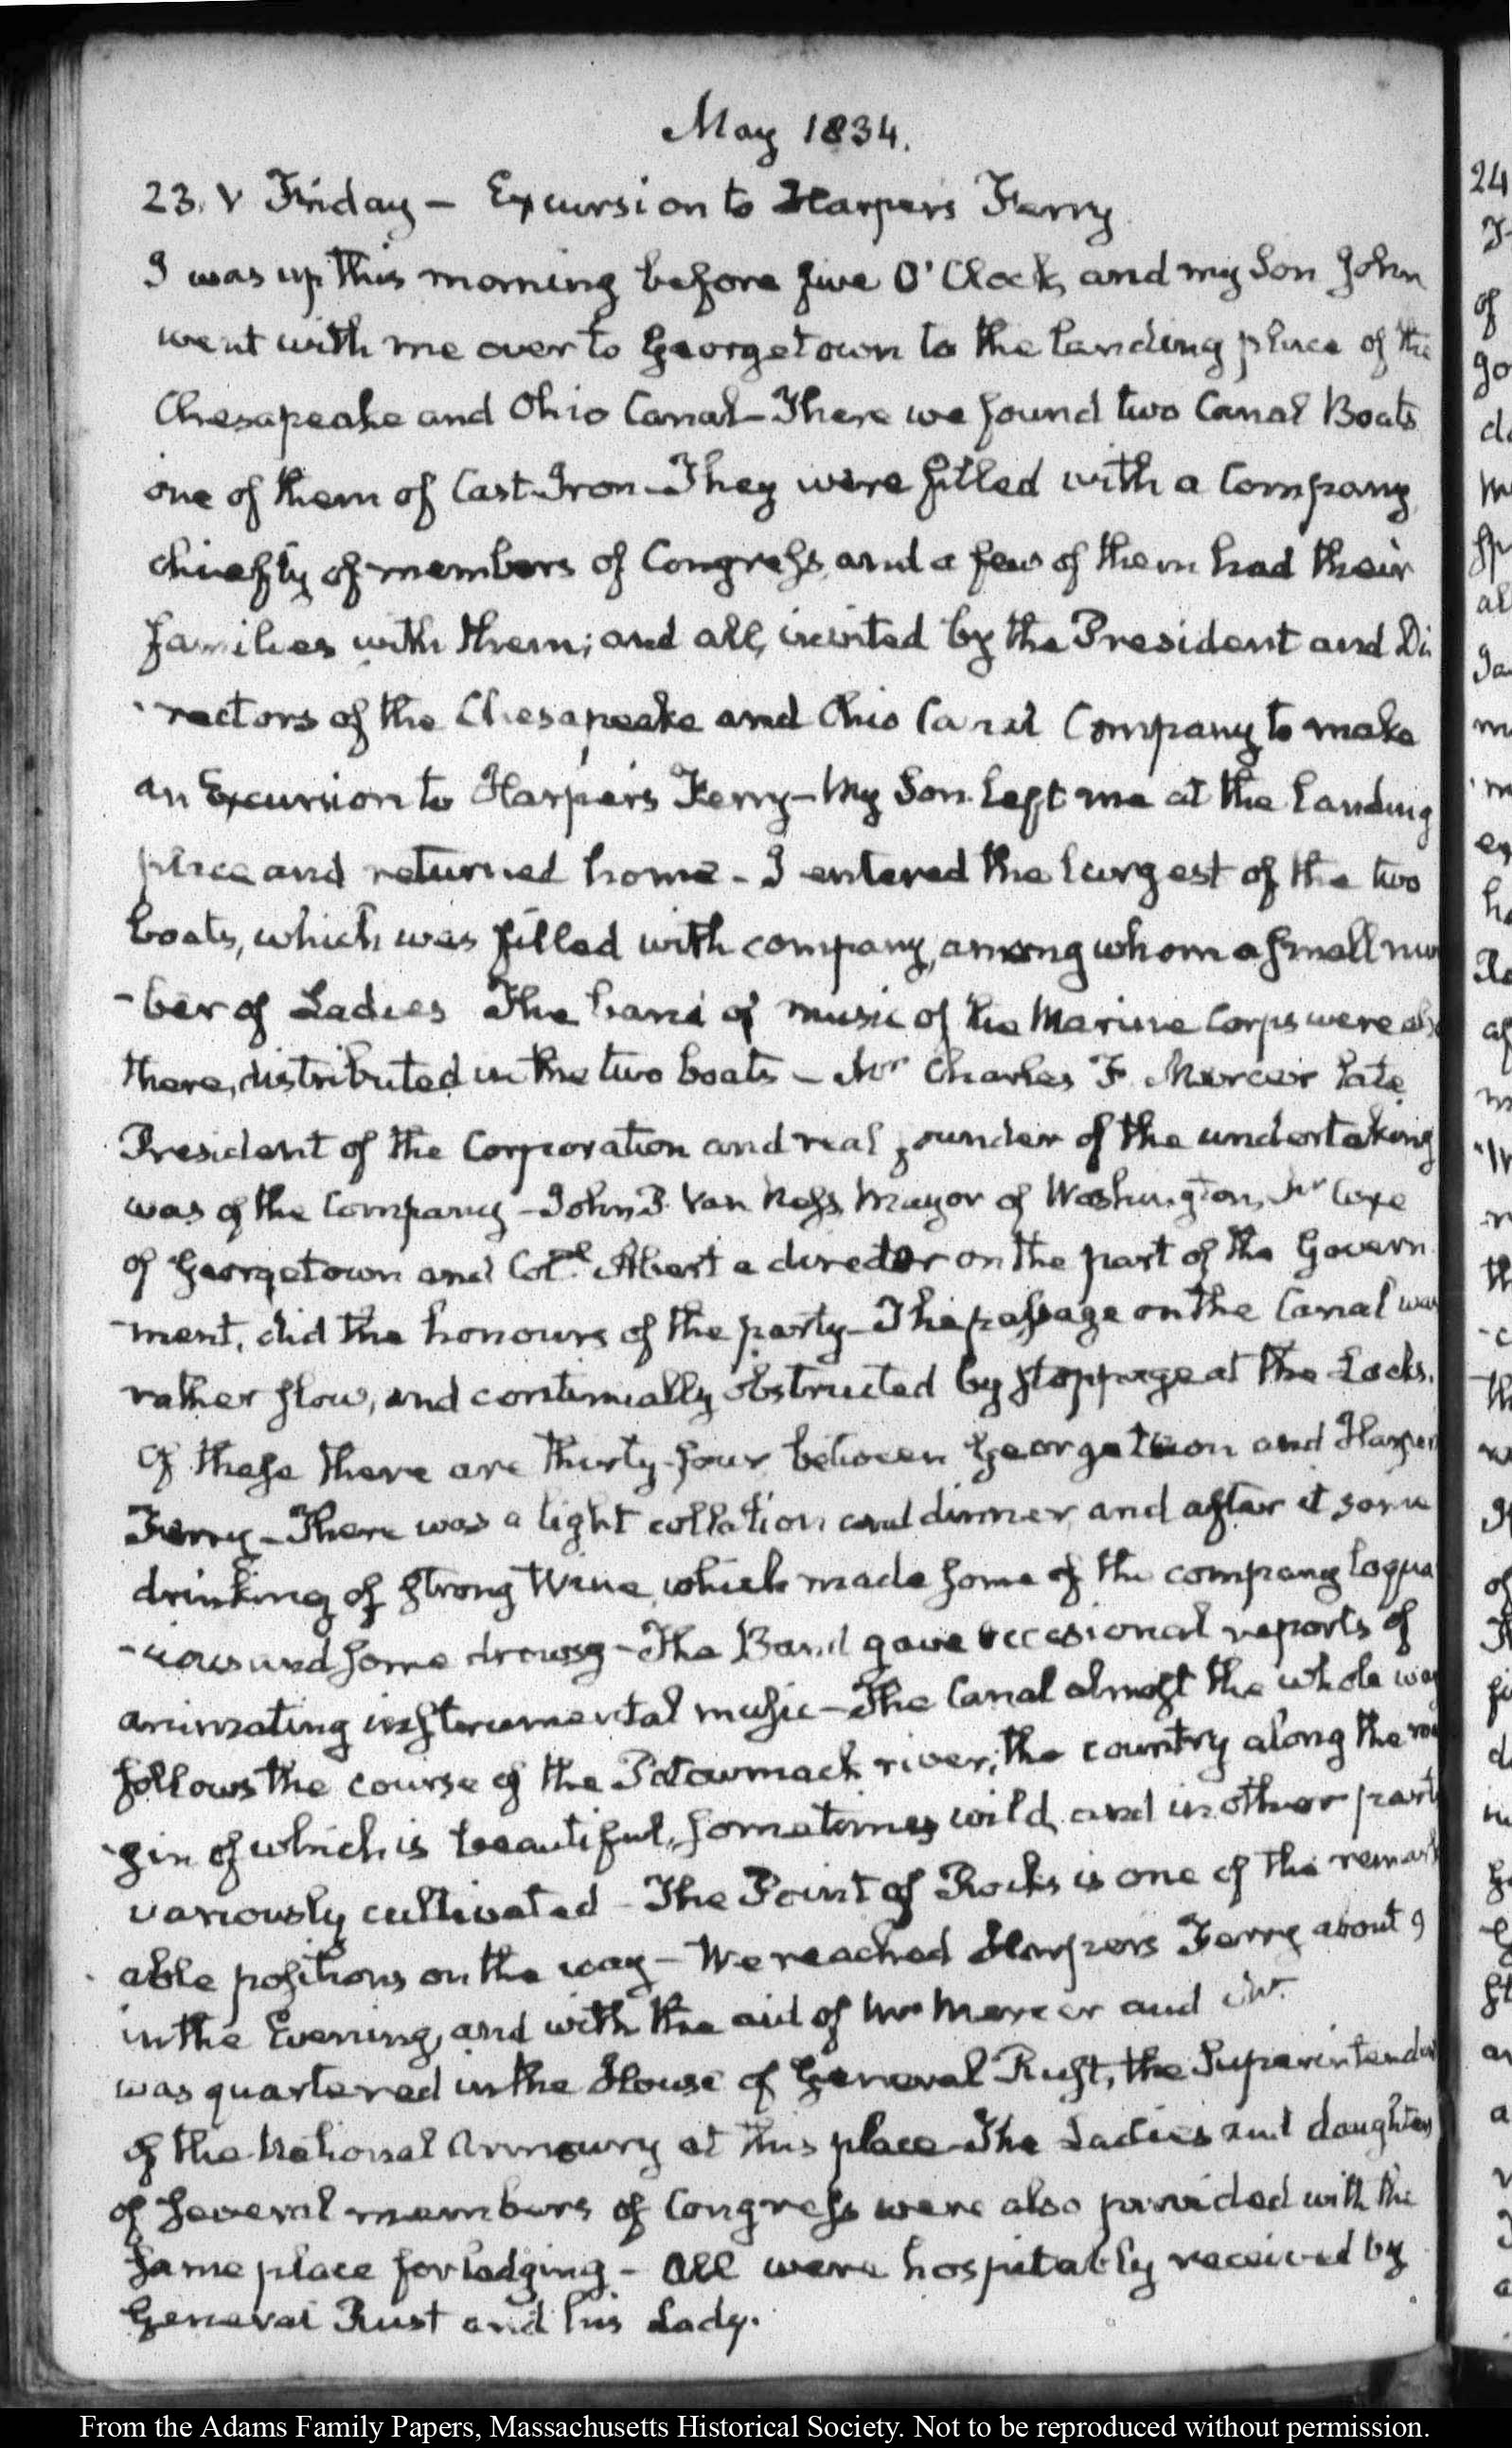 May 1834.
23. V Friday – Excursion to Harpers Ferry
I was up this morning before five O'Clock, and my Son John
went with me over to Georgetown to the landing place of the
Chesapeake and Ohio Canal – There we found two Canal Boats
one of them of Cast Iron – They were filled with a Company,
chiefly of members of Congress, and a few of them had their
families with them; and all, invited by the President and Di
rectors of the Chesapeake and Ohio Canal Company, to make
an Excursion to Harper's Ferry – My Son left me at the Landing
place and returned home – I entered the largest of the two
boats, which was filled with company, among whom a small num
-ber of Ladies The band of music of the Marine Corps were also
there, distributed in the two boats – Mr Charles F. Mercer late
President of the Corporation and real founder of the undertaking
was of the Company – John P. Van Ness Mayor of Washington, Mr Coxe
of Georgetown and Coll. Abert a director on the part of the Govern
-ment, did the honours of the party – The passage on the Canal was
rather slow, and continually obstructed by stoppage at the Locks.
Of these there are thirty-four between Georgetown and Harper's
Ferry – There was a light collation and dinner, and after it some
drinking of strong Wine, which made some of the company loqua
-cious and some drowsy – The Band gave occasional reports of
animating instrumental music – The Canal almost the whole way
follows the course of the Potowmack river; the country along the mar
-gin of which is beautiful, sometimes wild, and in other parts
variously cultivated – The Point of Rocks is one of the remark
able positions on the way – We reached Harpers Ferry about 9
in the Evening, and with the aid of Mr Mercer and Mr.
was quartered in the House of General Rust, the Superintendent
of the National Armoury at this place – The Ladies and daughters
of several members of Congress were also provided with the
same place for lodging – All were hospitably received by
General Rust and his Lady.
24
of
From the Adams Family Papers, Massachusetts Historical Society. Not to be reproduced without permission.